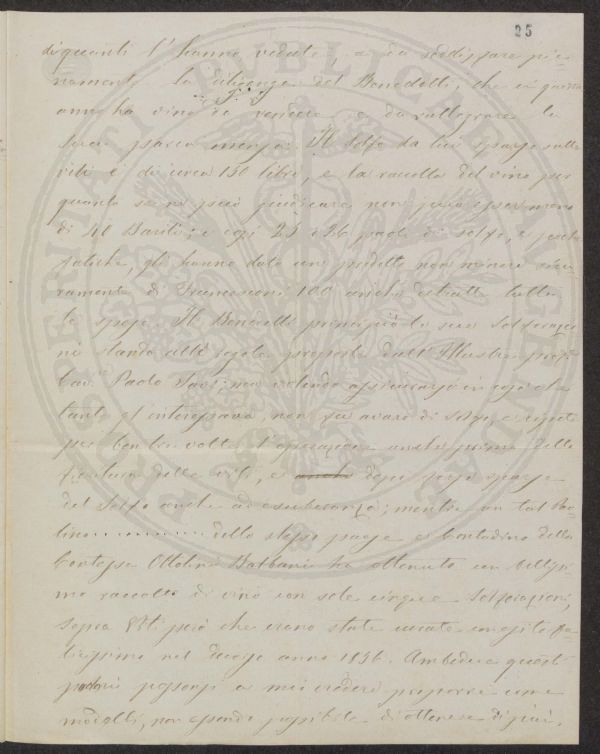 25
di quanti l'hanno veduto e da soddisfare pie-
namente la diligenza del Benedetti, che in questo
anno ha vino da vendere e da rallegrare la
sua parca mensa. Il Solfo da lui sparso sulle
viti è di circa 150 libre, e la raccolta del vino per
quanto se ne può giudicare, non può esser meno
di 40 Barili; e così 25 o 26 paoli di solfo, e poche
fatiche, gli hanno dato un prodotto non minore sicu-
ramente di Francesconi 100 anche detratte tutte
le spese. Il Benedetti principiò le sue Solforazio-
ni stando alle regole proposte dall' Illustre prof.
Cav. Paolo Savi; ma volendo assicurarsi in cosa che
tanto gl'interessava, non fu avaro di Solfo e ripetè
per ben tre volte l'operazione anche prima della
fioritura delle viti, e anche dopo fece spargere
del Solfo anche ad esuberanza; mentre un tal Pao-
lino dello stesso paese e Contadino della
Contessa Ottolini Balbani ha ottenuto un bellissi-
mo raccolto di vino con sole cinque Solforazioni,
sopra Viti però che erano state curate con esito fe-
licissimo nel decorso anno 1856. Ambedue questi
possonsi a mio credere proporre come
modelli, non essendo possibile di ottenere di più.